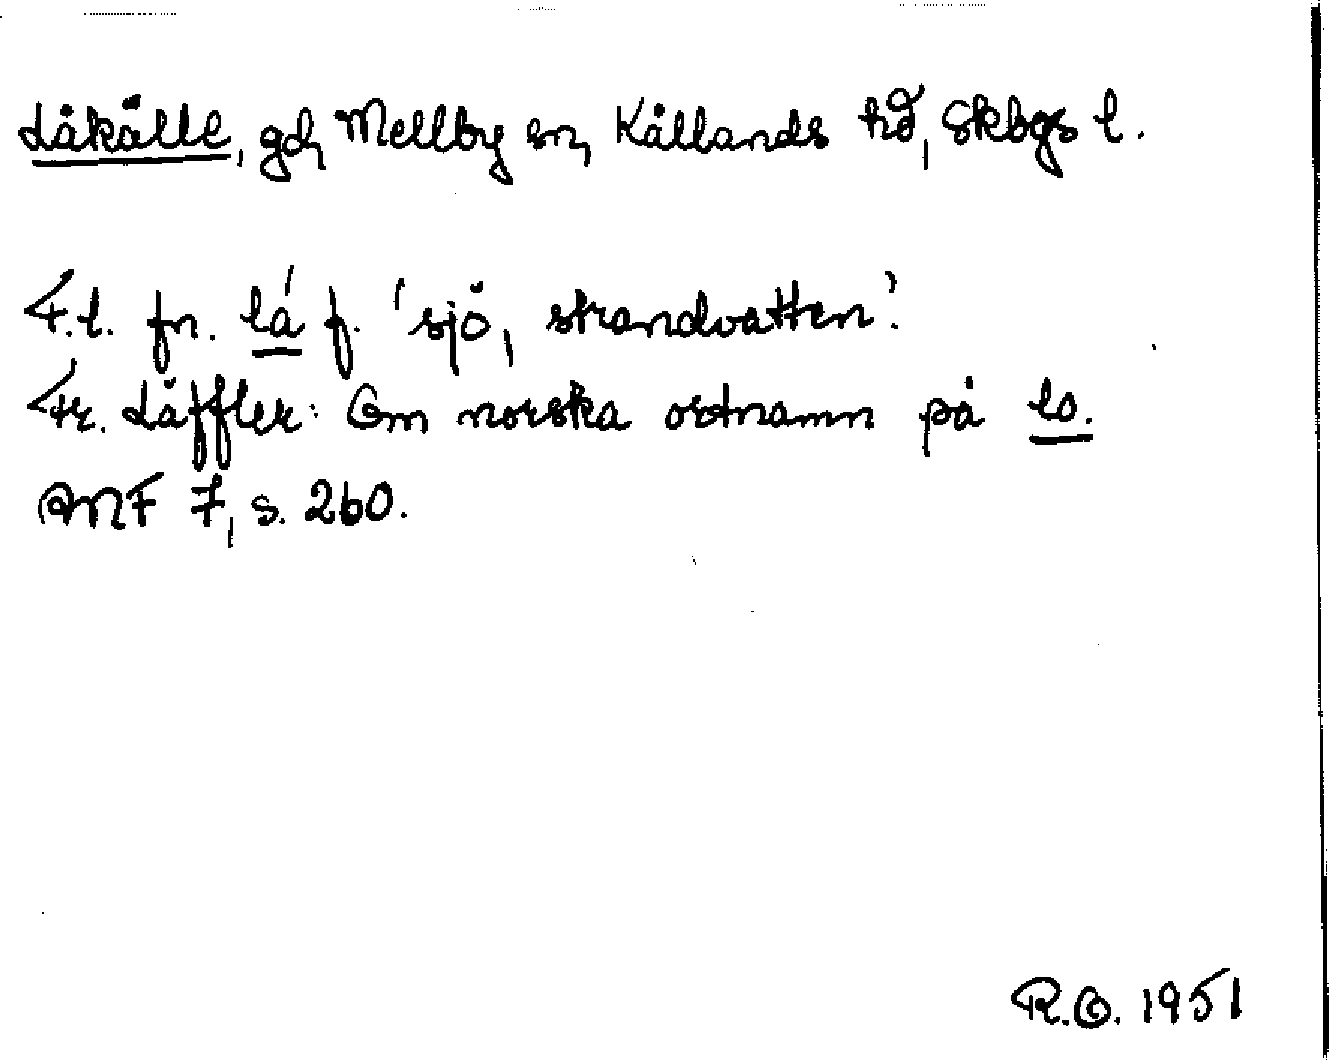 Låkälle, gd, Mellby sn, Kållands hd, Skbgs l.
F.l. fn. lá f. 'sjö, strandvatten'.
Fr. Läffler: Om norska ortnamn på lo.
ANF 7, s. 260.
R.O. 1951